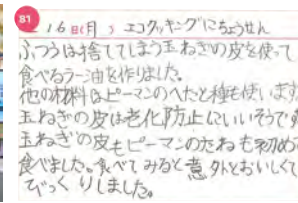 81
16日(月) エコクッキングにちょうせん
ふつうは捨ててしまう玉ねぎの皮を使って
食べるラー油を作りました。
他の材料はピーマンのへたと種も使います
玉ねぎの皮は老化防止にいいそうで
玉ねぎの皮もピーマンのたねも初めて
食べました。食べてみると意外とおいしくて
びっくりしました。